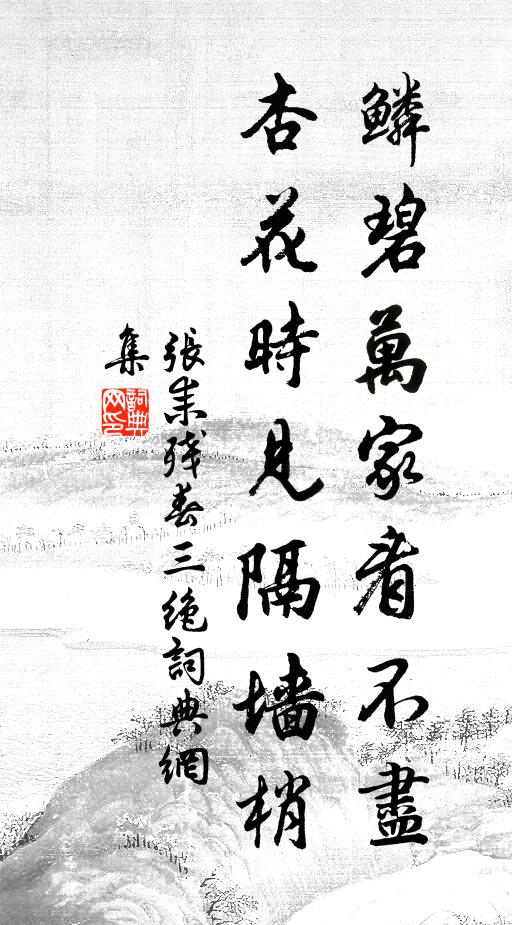 鱗碧萬家看不盡
杏花時見隔墙梢
張耒殘春三絶詞典網
集
詞典網印